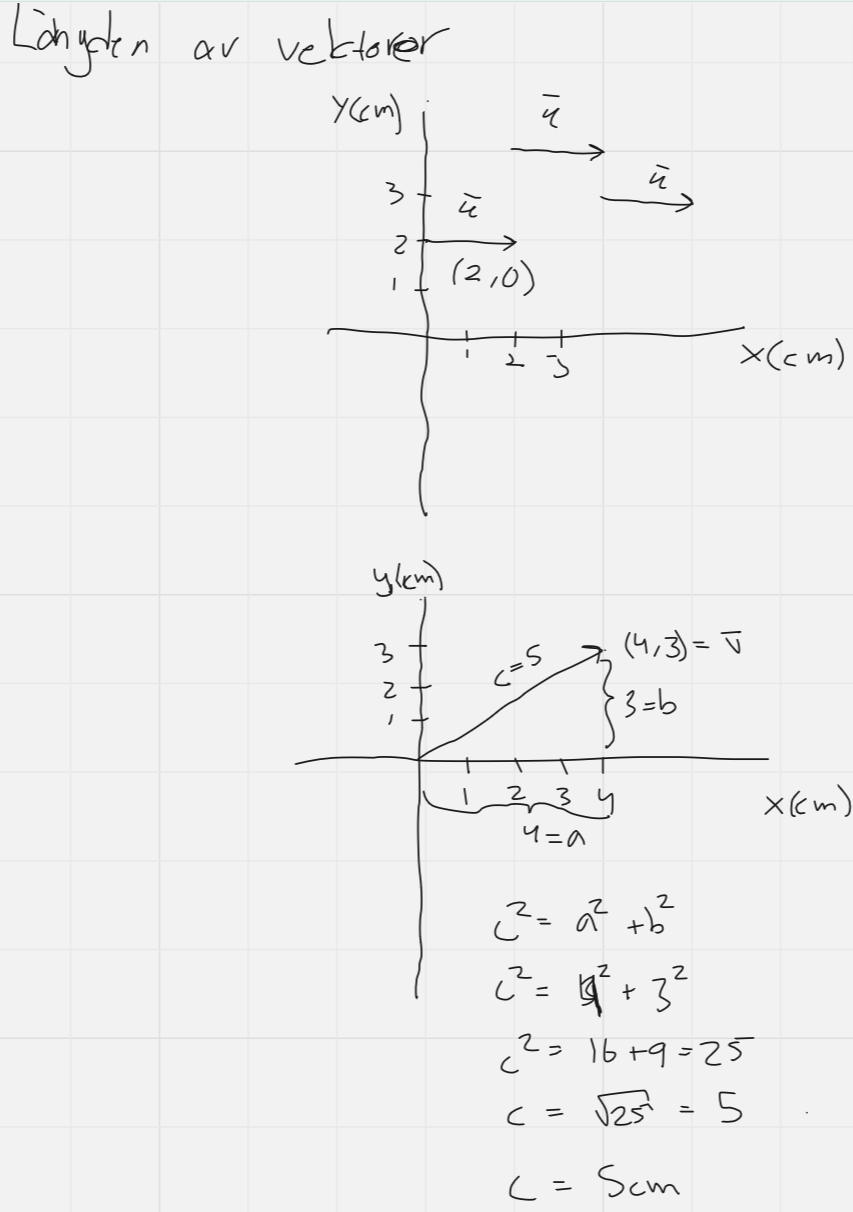 Längden av vektorer
y(cm)
ū
ū
3
ū
2
(2,0)
1
1 2 3
x(cm)
y(cm)
3
c=5
(4,3) = v̄
2
3=b
1
1 2 3 4
x(cm)
4=a
c² = a² + b²
c² = 4² + 3²
c² = 16+9=25
c = √25 = 5
c = 5cm